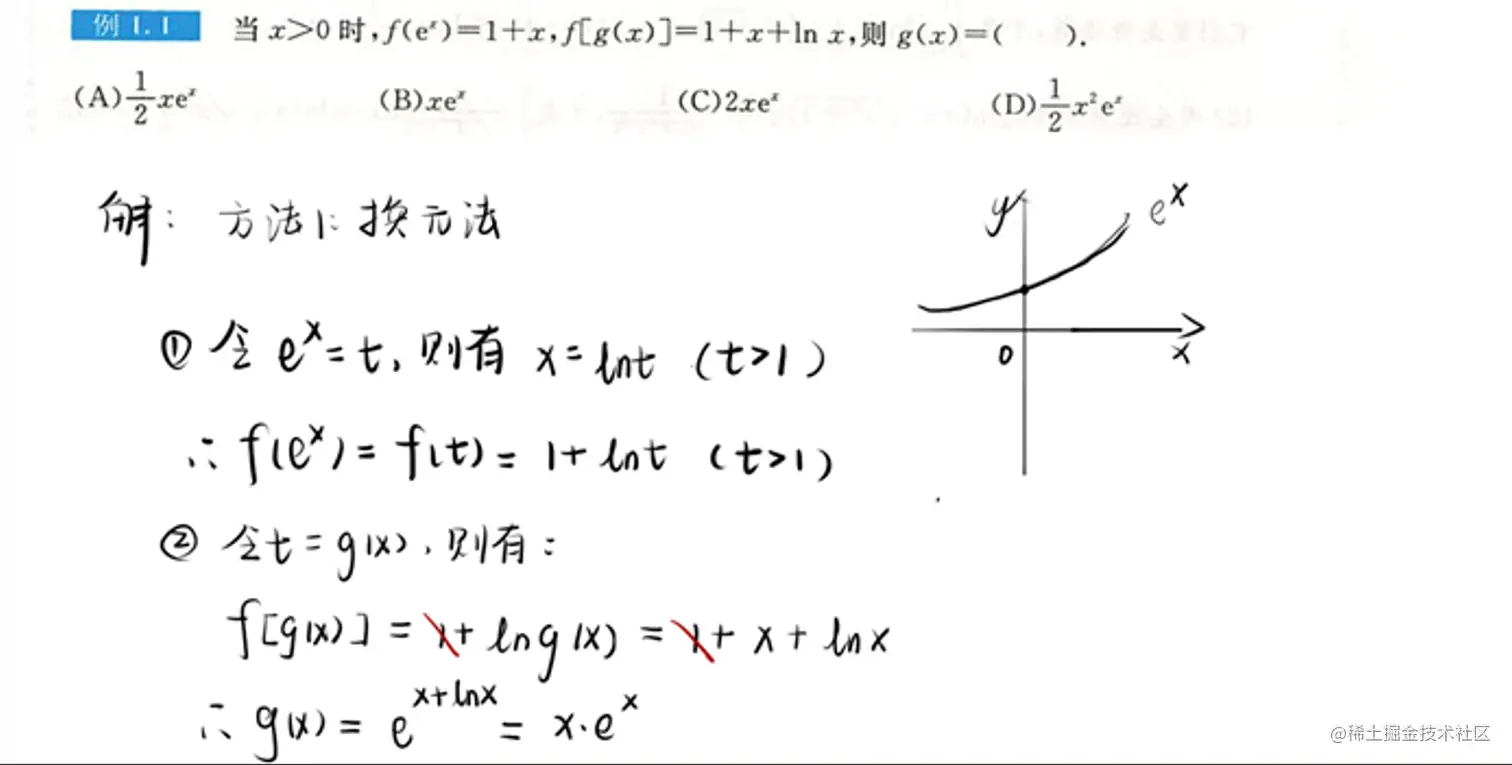 例 1.1 当 x>0 时,f(eˣ)=1+x,f[g(x)]=1+x+ln x,则 g(x)=( ).
(A) 1/2 xeˣ (B) xeˣ (C) 2xeˣ (D) 1/2 x²eˣ
解: 方法1: 换元法
y eˣ
① 令 eˣ = t, 则有 x = lnt (t>1)
0 x
∴ f(eˣ) = f(t) = 1+ lnt (t>1)
② 令t = g(x), 则有:
f[g(x)] = 1+ lng(x) = 1+ x + lnx
∴ g(x) = e^(x+lnx) = x·eˣ
@稀土掘金技术社区